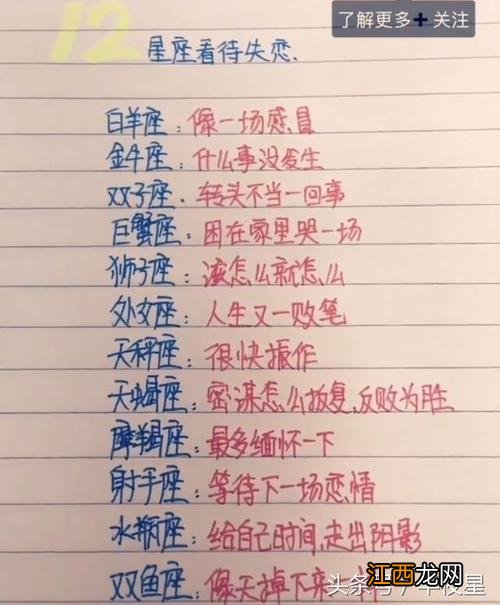 了解更多+关注
12
星座看待失恋.
白羊座：像一场感冒
金牛座：什么事没发生
双子座.转头不当一回事
巨蟹座：困在家里哭一场
狮子座：该怎么就怎么
处女座：人生又一败笔
天秤座：很快振作
天蝎座：密谋怎么报复,反败为胜
摩羯座：最多缅怀一下
射手座：等待下一场恋情
水瓶座：给自己时间,走出阴影
双鱼座：像天掉下来
头条号/半夜星
江西龙网